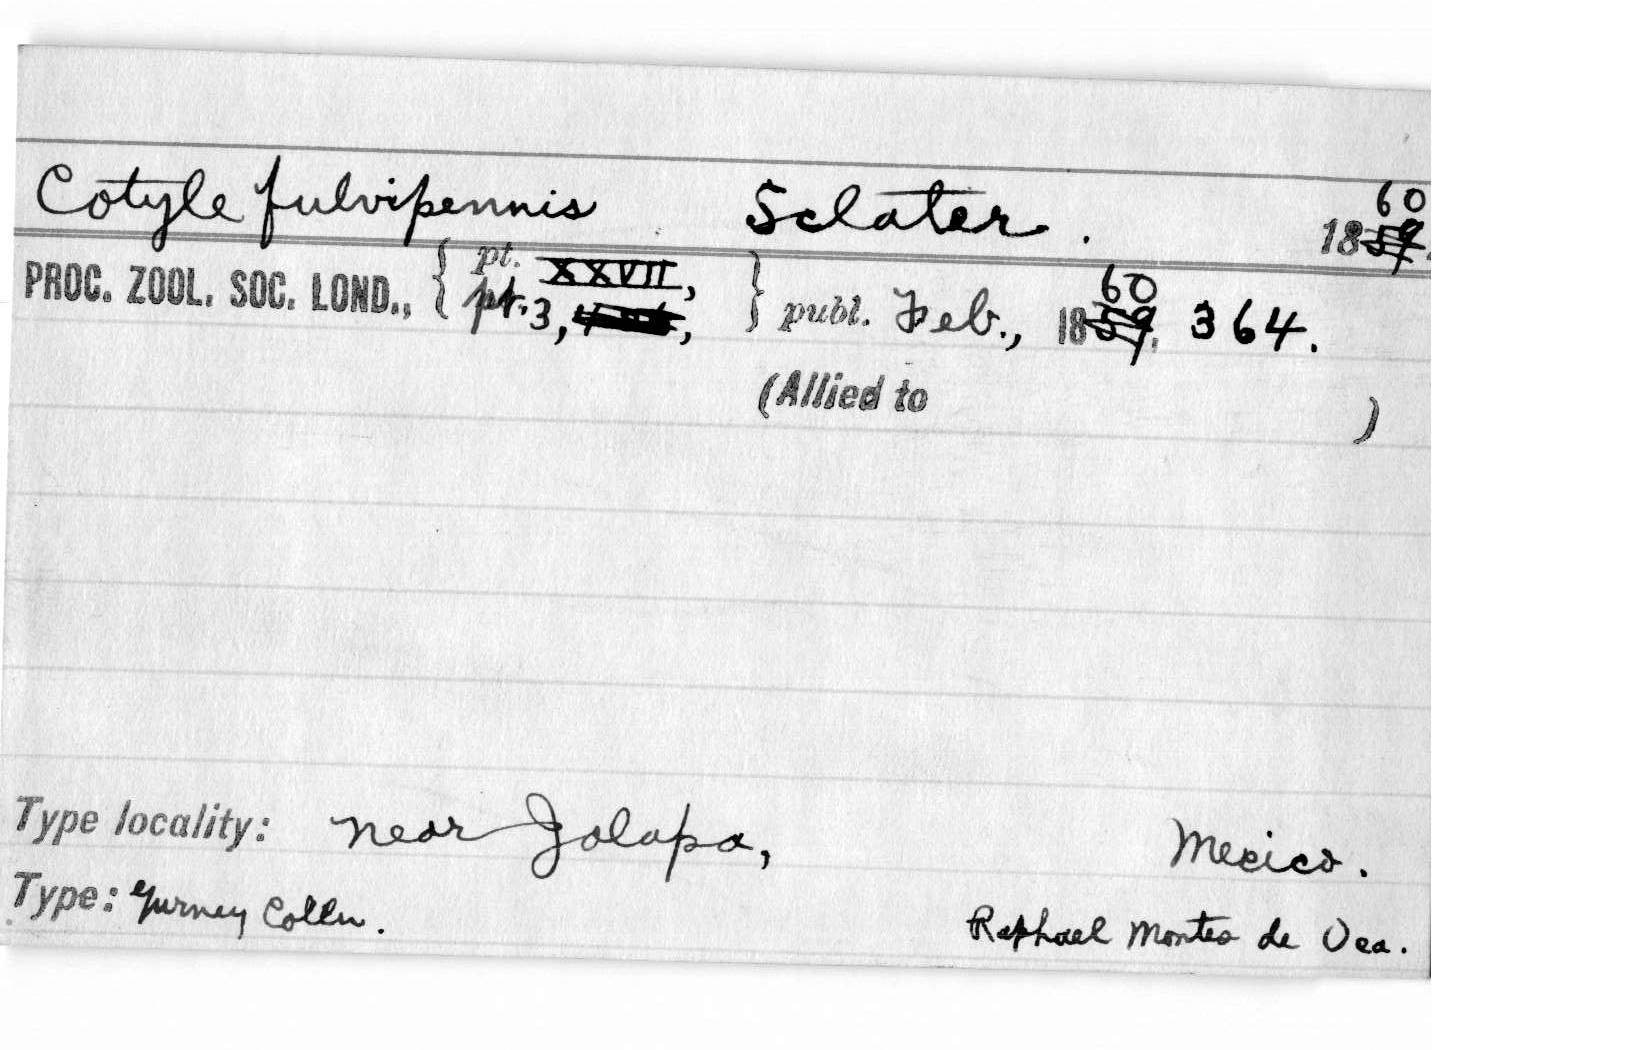 Cotyle fulvipennis Sclater. 1859. 60
PROC. ZOOL. SOC. LOND., { pt. XXVII, pt. 3, } publ. Feb., 1859. 60 364.
(Allied to )
Type locality: near Jalapa, Mexico.
Type: Gurney Colln. Raphael Montes de Oca.